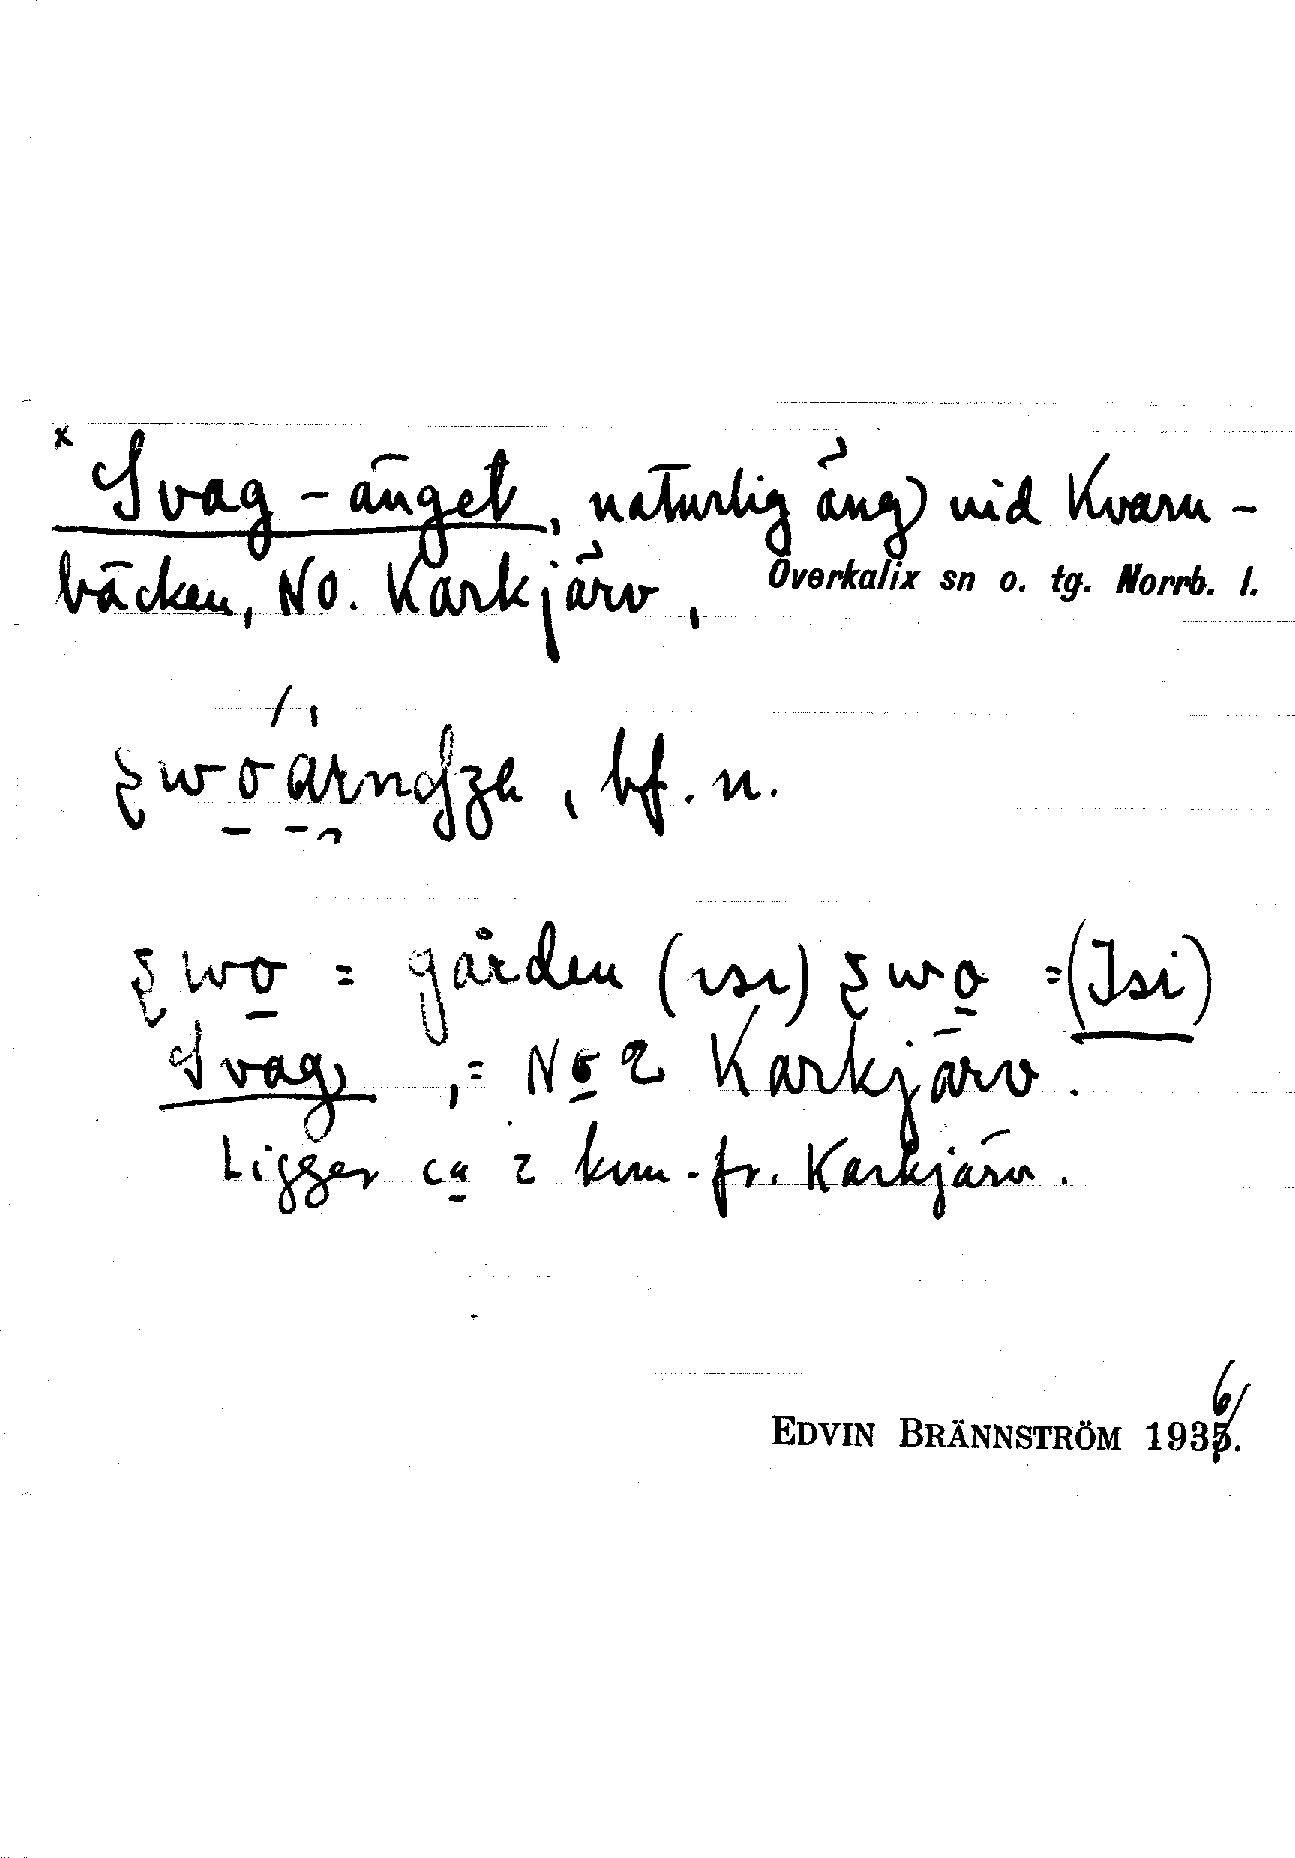 x Svag-änget, naturlig äng vid Kvarn-
bäcken, NO. Karkjärv,
Överkalix sn o. tg. Norrb. l.
, bf. n.
= gården = (Isi)
Svag, = No 2 Karkjärv.
Ligger ca 2 km. fr. Karkjärv.
6/
EDVIN BRÄNNSTRÖM 1935.